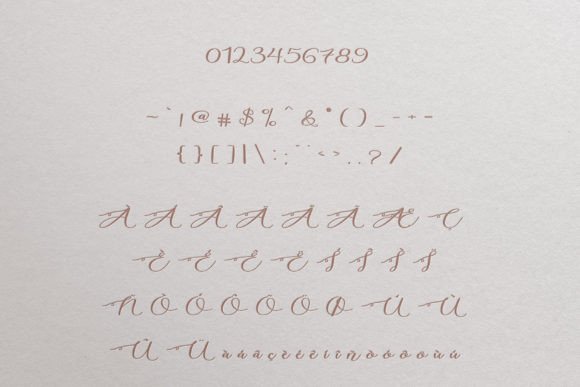 0123456789
~ ` ! @ # $ % ^ & * ( ) _ - + =
{ } [ ] | \ : ; " ' < > , . ? /
À Á Â Ã Ä Å Æ Ç
È É Ê Ë Í Î Ì Ï
Ñ Ò Ó Ô Õ Ö Ø Ú Ù
Û Ü à á â ã ç è é ê ë ì í ñ ò ó ô õ ö ù ú